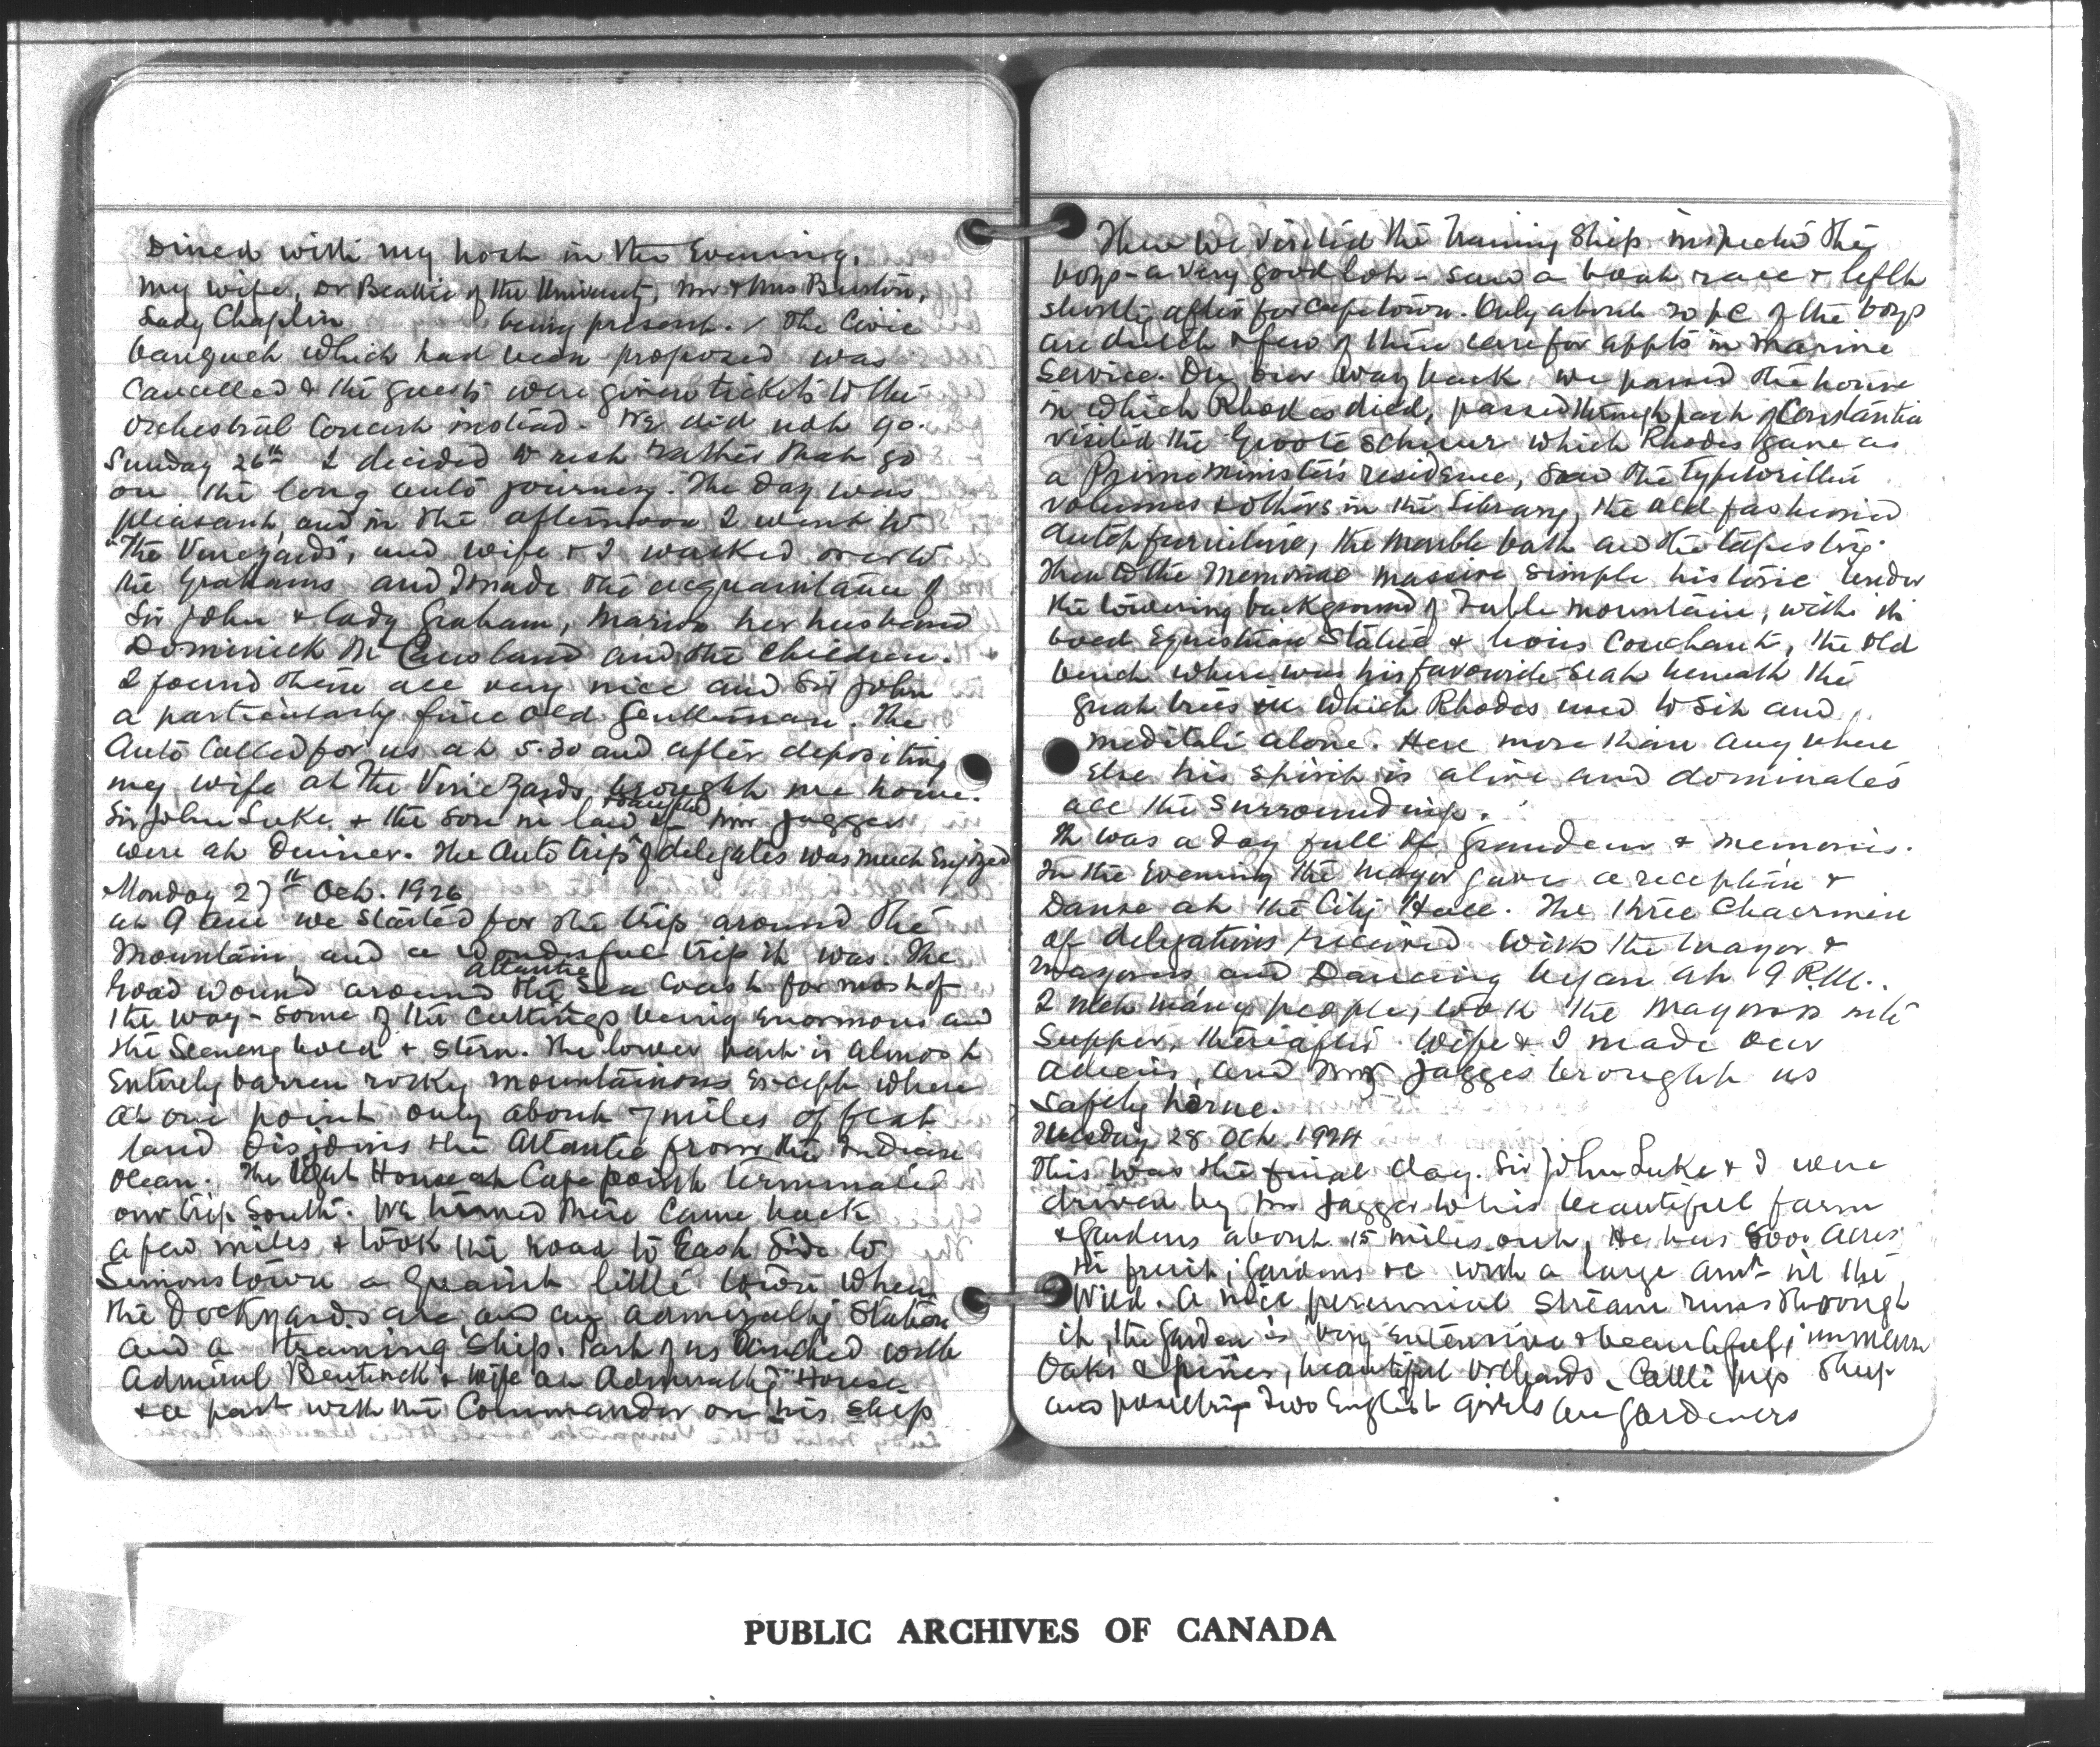 Dined with my host in the Evening,
My wife, Dr Beattie of the University, Mr & Mrs Buxton,
Lady Chaplin being present. / The Civic
banquet which had been proposed was
Cancelled & the guests were given tickets to the
Orchestral Concert instead. We did not go.
Sunday 26th I decided to rest rather than go
on the long auto journey. The day was
pleasant, and in the afternoon I went to
"The Vineyards", and wife & I walked over to
the Grahams and I made the acquaintance of
Sir John & Lady Graham, Marion her husband
Dominick McCausland and the children.
I found them all very nice and Sir John
a particularly fine old Gentleman. The
Auto Called for us at 5.30 and after depositing
my wife at the Vineyards brought me home.
Sir John Luke & the Son in law & daughter of Mr Jagger
were at Dinner. The Auto trip of delegates was much Enjoyed
Monday 27th Oct. 1926
at 9 am we started for the trip around the
Mountain, and a Wonderful trip it was. The
Road wound around the Atlantic Sea Coast for most of
the way – some of the Cuttings being Enormous and
the Scenery bold & stern. The lower part is almost
Entirely barren rocky mountainous Except where
at one point only about 7 miles of flat
land disjoins the Atlantic from the Indian
Ocean. The Light House at Cape point terminated
our trip South. We turned there Came back
a few miles & took the road to East Side to
Simonstown a quaint little town where
the Dockyards are and an Admiralty Station
and a training Ship. Part of us lunched with
Admiral Bentinck & wife at Admiralty House
& a part with the Commander on his ship
Then we visited the Training Ship inspected the
boys – a very good lot – saw a boat race & left
shortly after for Capetown. Only about 20 pc of the boys
are dutch & few of them care for appts in Marine
Service. On our way back we passed the house
in which Rhodes died, passed through part of Constantia
visited the Groote Schuur which Rhodes gave as
a Prime Minister's residence, saw the typewritten
volumes & others in the Library, the old fashioned
dutch furniture, the marble bath and the tapestry.
Then to the Memorial massive simple historic under
the towering background of Table Mountain, with its
bold Equestrian Statue & lions Couchant, the Old
bench where was his favourite seat beneath the
great trees in which Rhodes used to Sit and
meditate alone. Here more than any where
Else his Spirit is alive and dominates
all the surroundings.
It was a day full of grandeur & memories.
In the Evening the Mayor gave a reception &
Danse at the City Hall. The three Chairmen
of delegations received with the Mayor &
Mayoress and Dancing began at 9 P.M.
I met many people, took the Mayoress into
Supper, thereafter Wife & I made our
adieus, and Mr Jagger brought us
Safely home.
Tuesday 28 Oct. 1924
This was the final day. Sir John Luke & I were
driven by Mr Jagger to his beautiful farm
& Gardens about 15 miles out, He has 800 Acres
in fruit, Gardens &c with a large amt in the
Wild. A nice perennial stream runs through
it, the Garden is very extensive & beautiful, immense
Oaks & pines, beautiful Orchards, Cattle pigs Sheep
and poultry Two English girls are gardeners
PUBLIC ARCHIVES OF CANADA